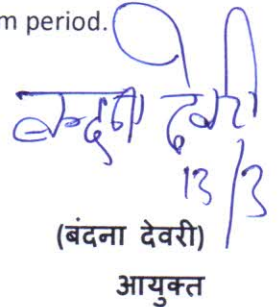 m period.
बन्दना देवरी
13/3
(बंदना देवरी)
आयुक्त